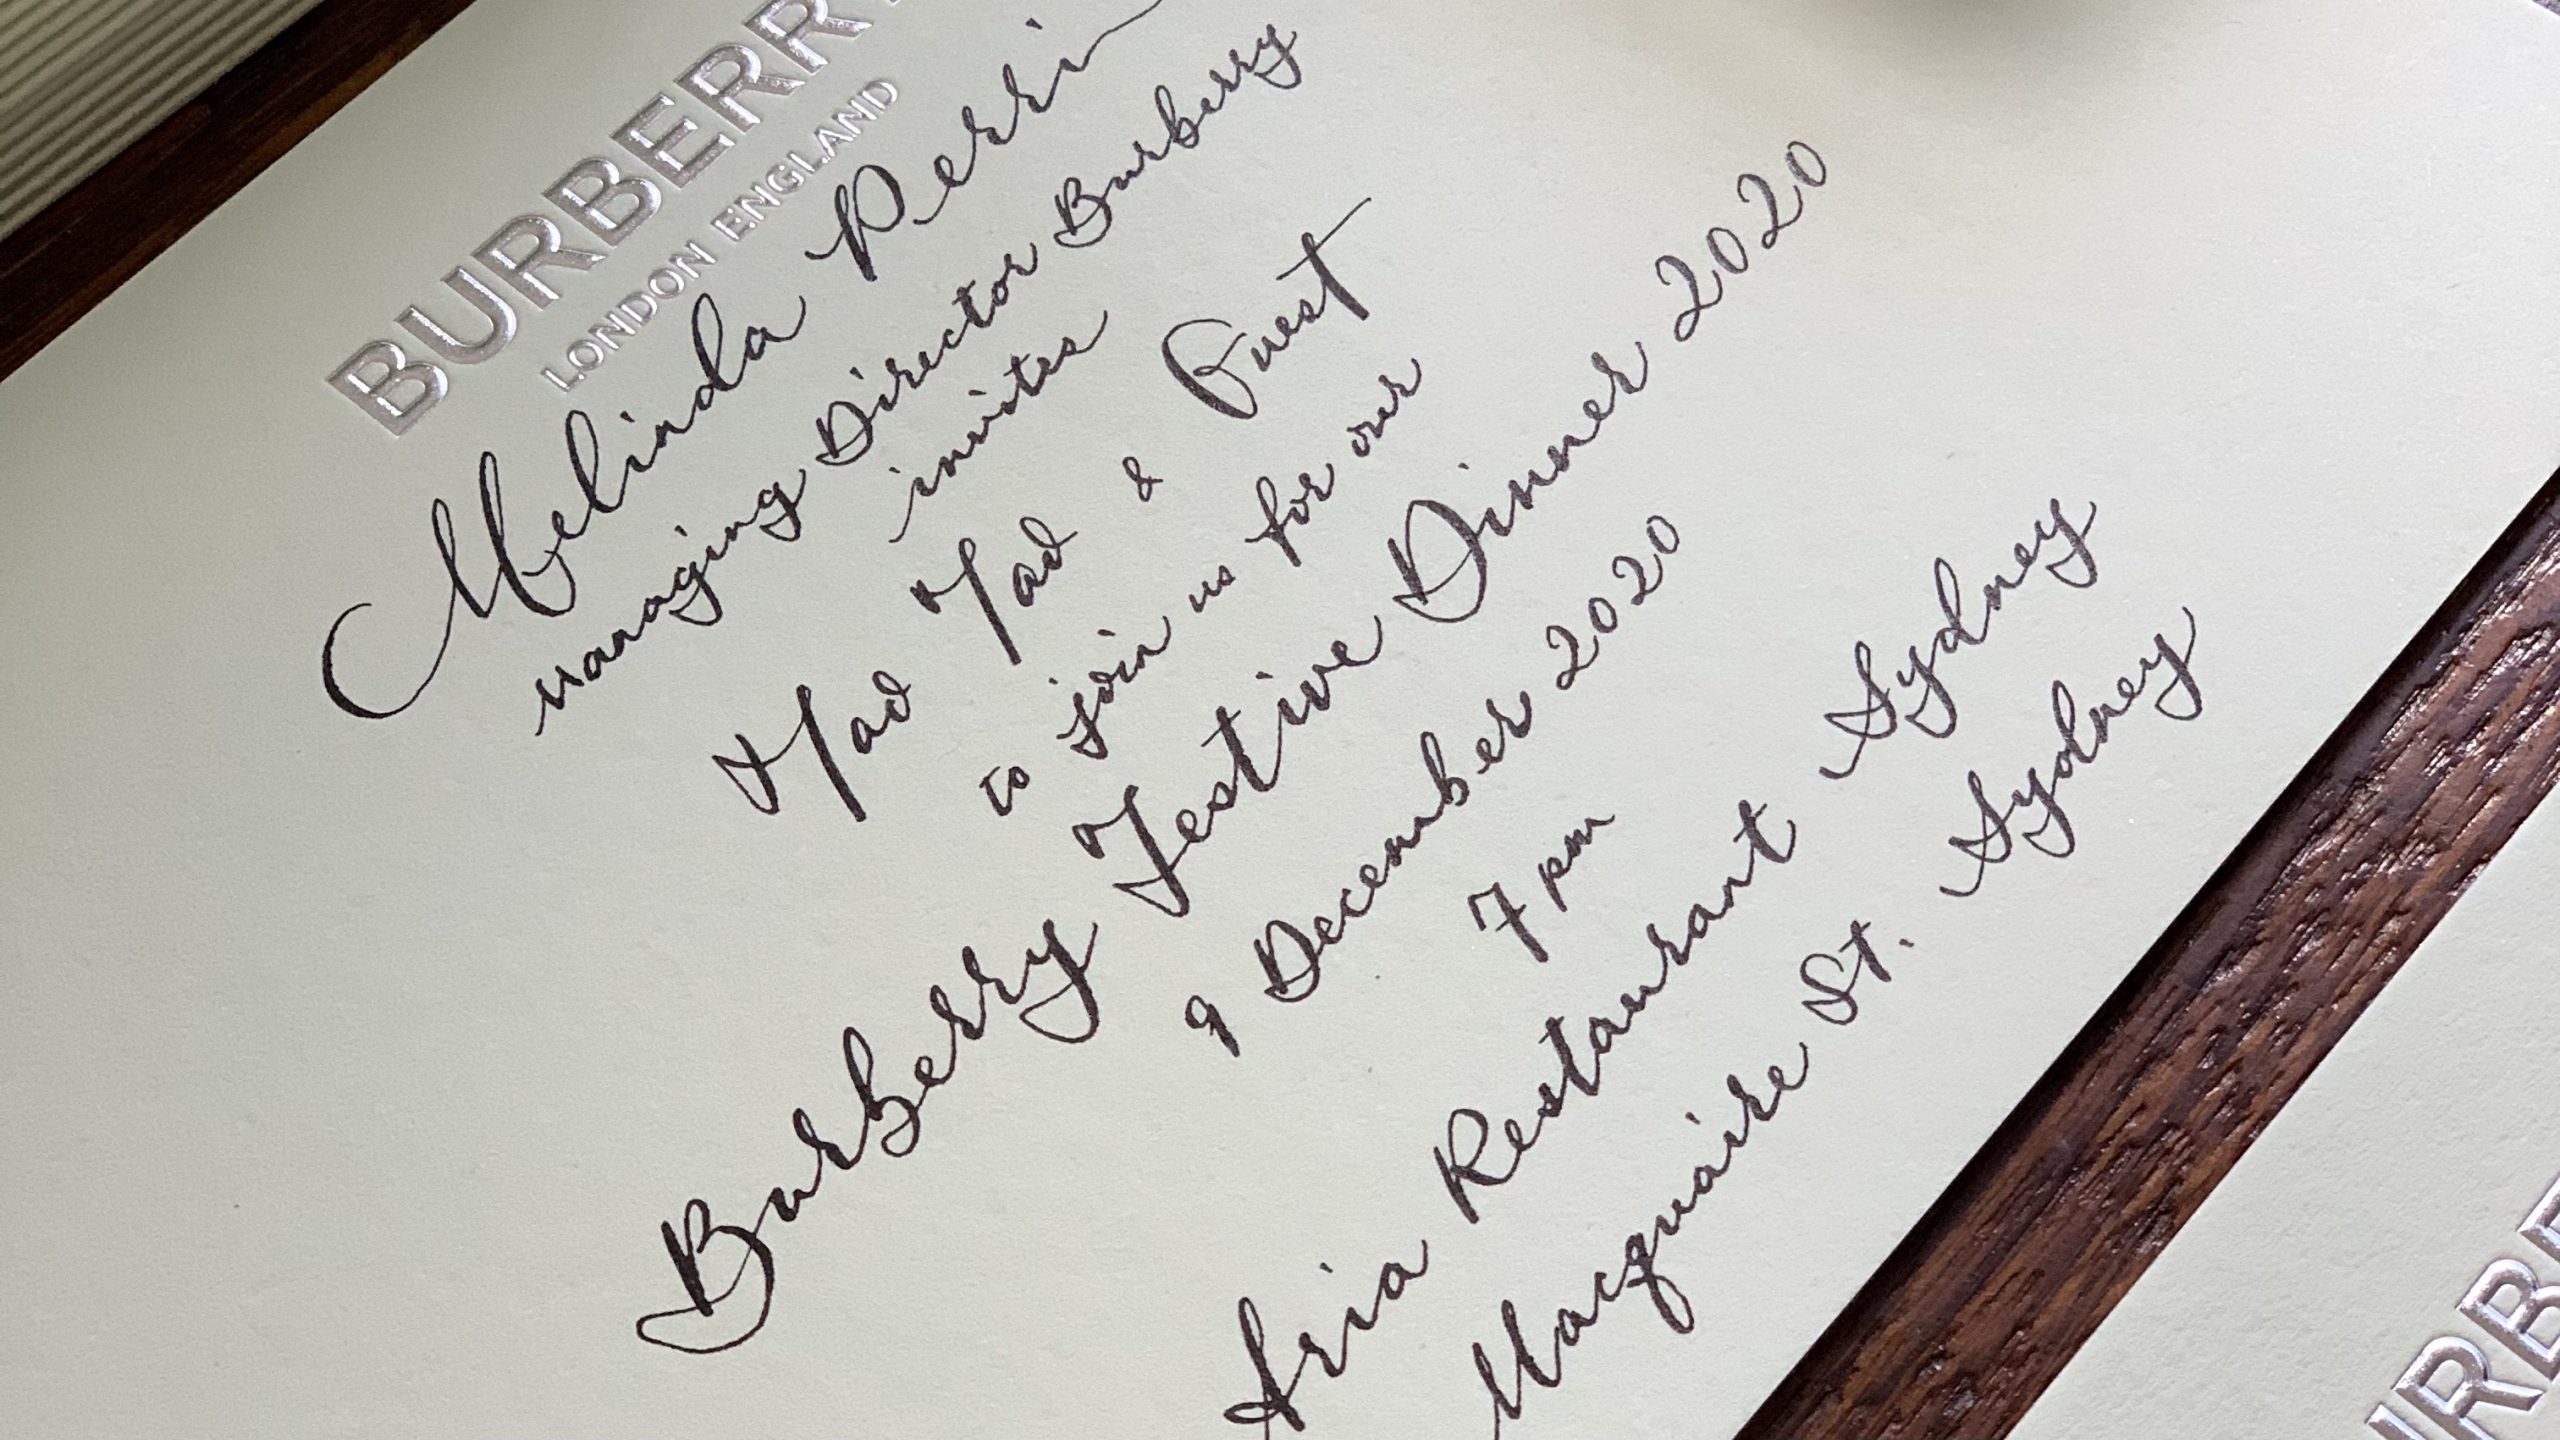 BURBERRY
LONDON ENGLAND
Melinda Perrin
Managing Director Burberry
invites
Had Tad & Guest
to join us for our
Burberry Festive Dinner 2020
9 December 2020
7 pm
Aria Restaurant Sydney
Macquaire St. Sydney